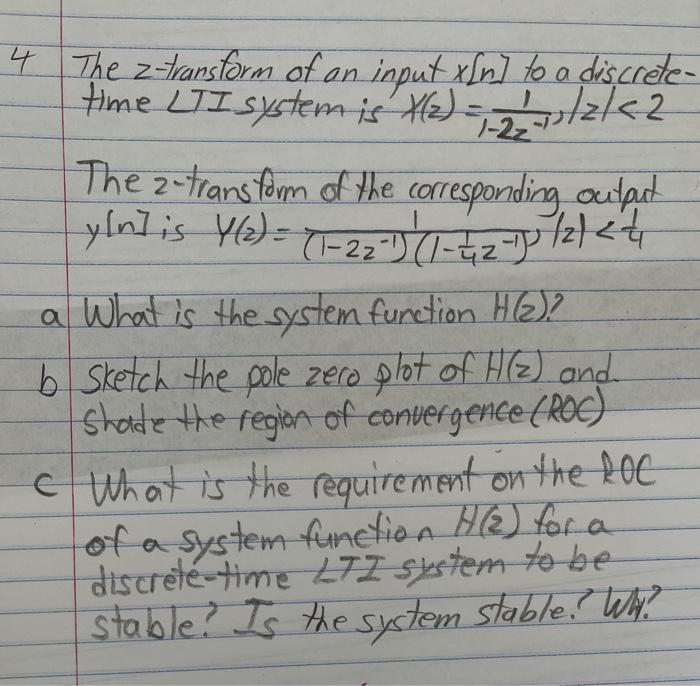 4 The z-transform of an input x[n] to a discrete-
time LTI system is X(z) = 1/(1-2z⁻¹), |z|<2
The z-transform of the corresponding output
y[n] is Y(z) = 1/((1-2z⁻¹)(1-1/4z⁻¹)), |z|<1/4
a What is the system function H(z)?
b Sketch the pole zero plot of H(z) and
shade the region of convergence (ROC)
c What is the requirement on the ROC
of a system function H(z) for a
discrete-time LTI system to be
stable? Is the system stable? Why?